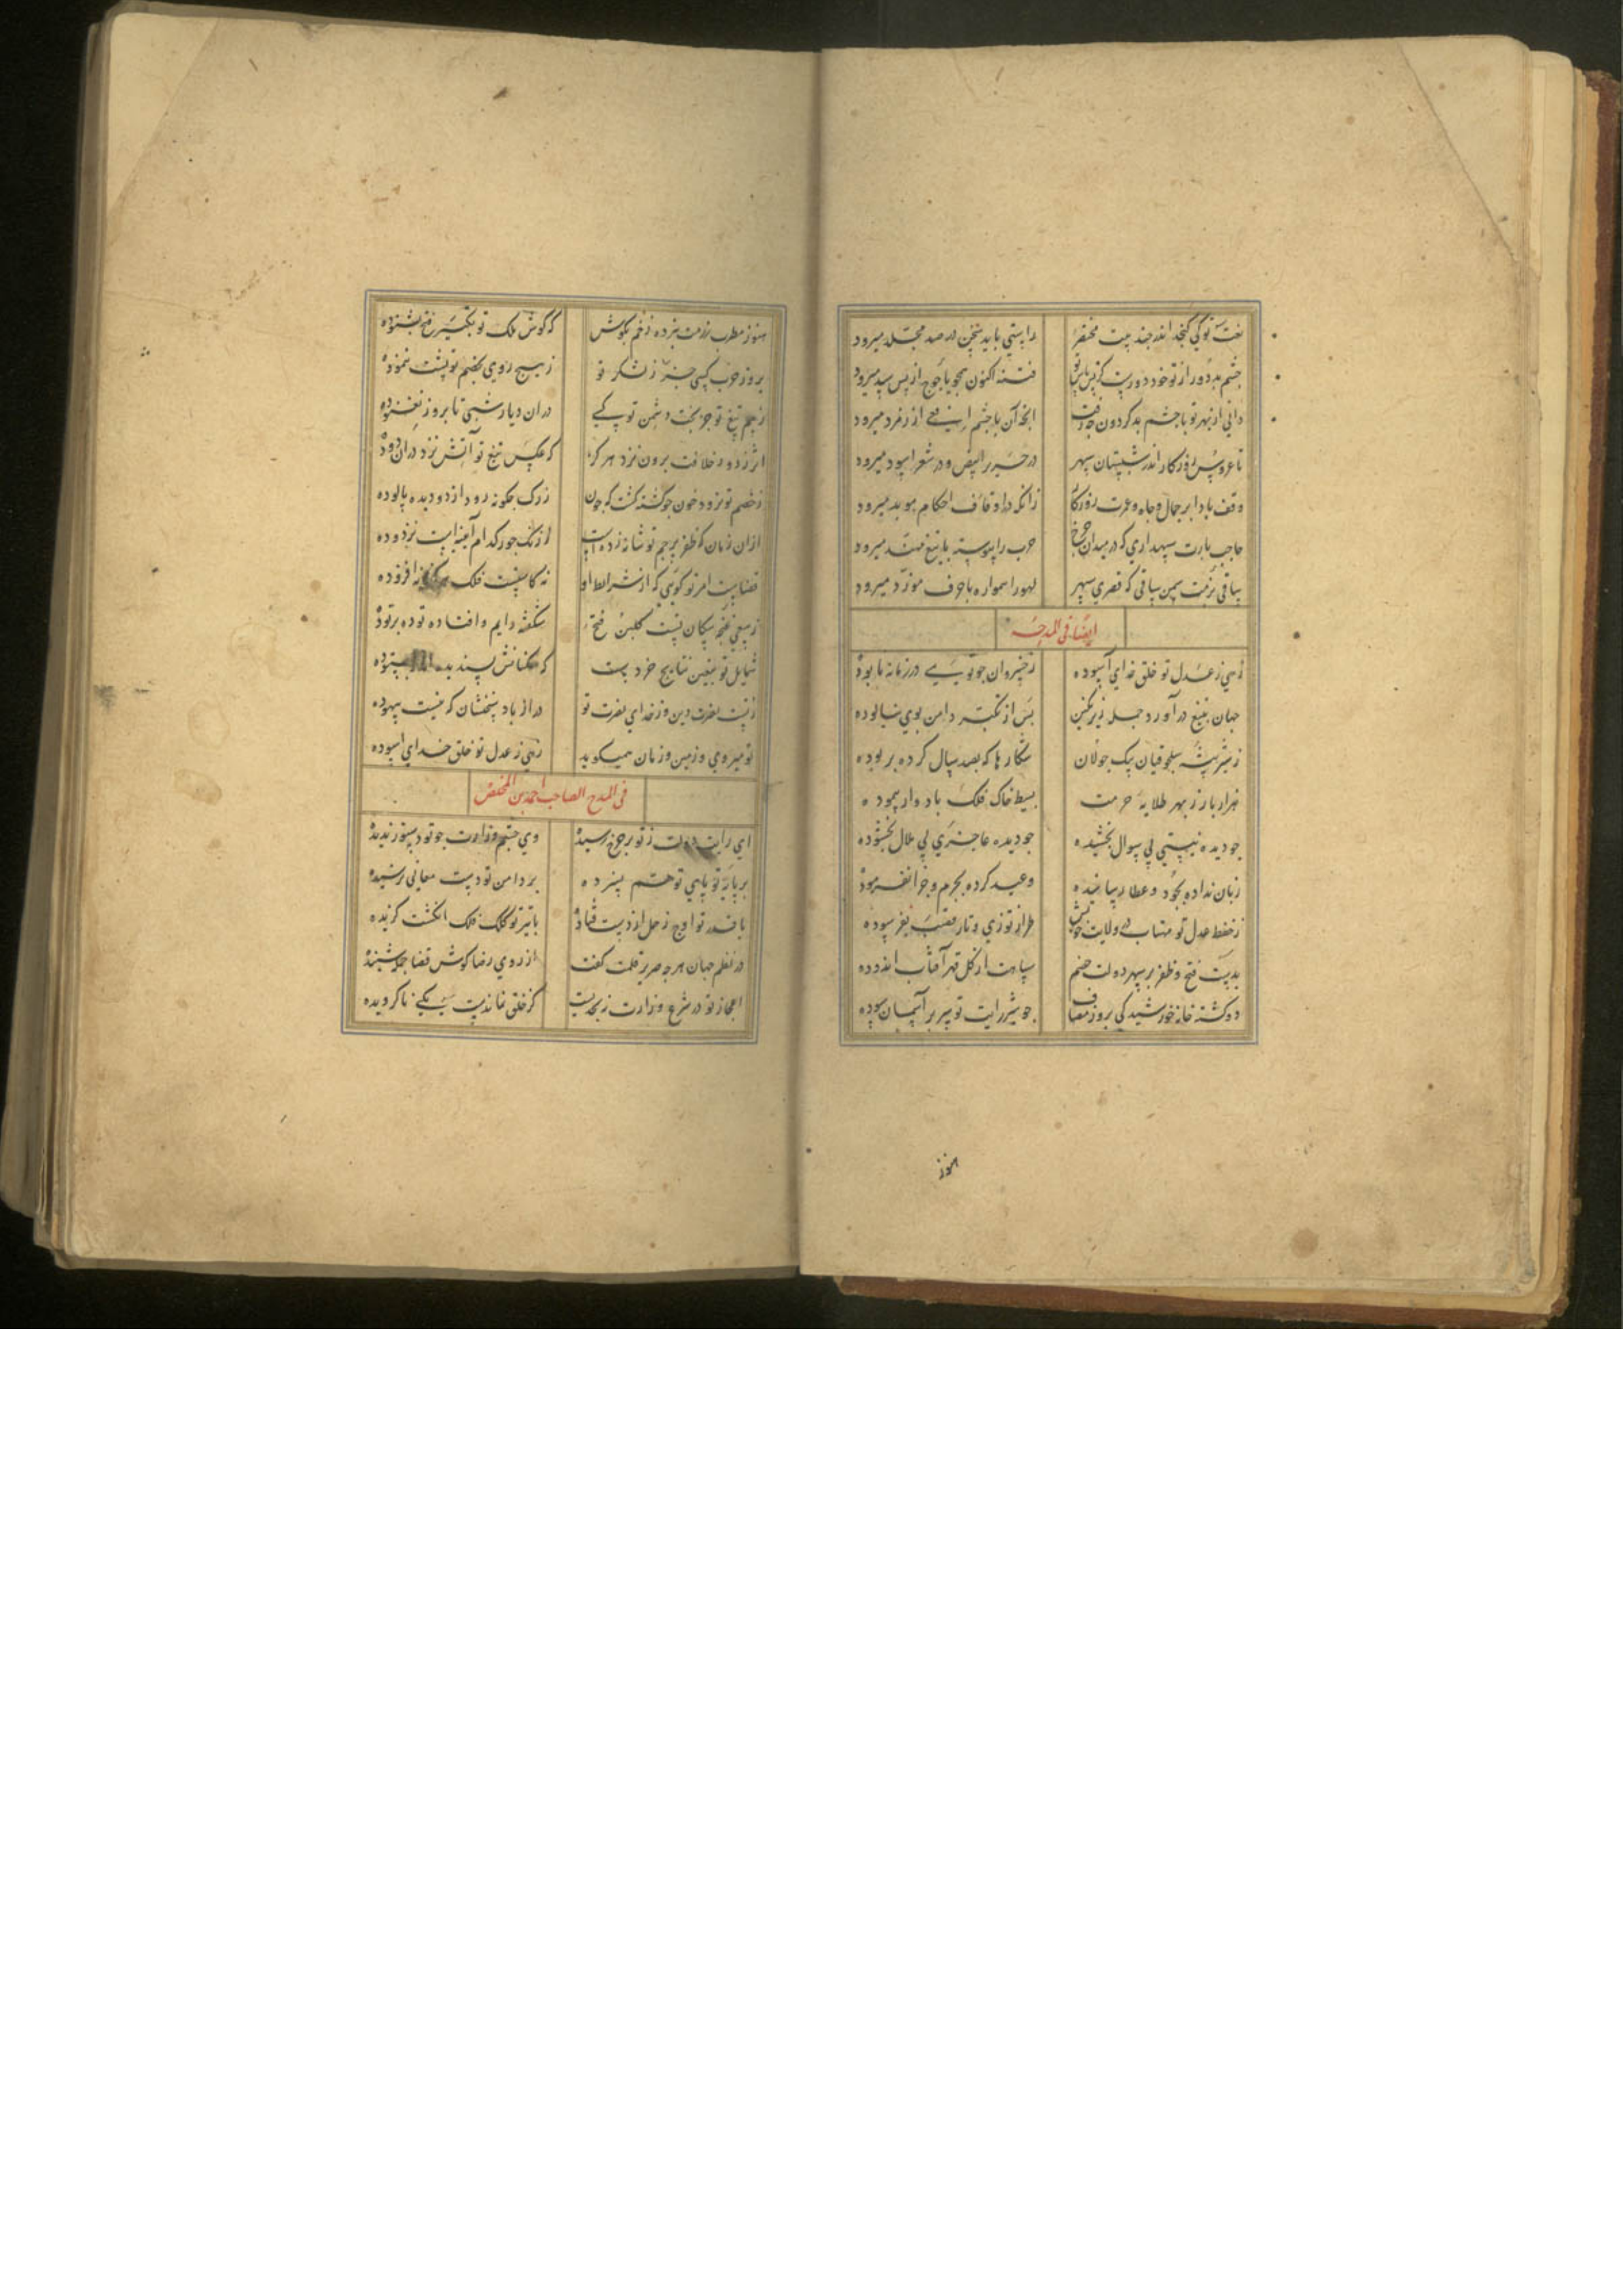 نعت تو کی کنجد اندر چند بیت مختصر راستی باید سخن در صد مجلد میرود
چشم بد دور از تو خود دورست کز بس باس تو فتنه اکنون همچو یاجوج از پس سد میرود
دانی از بهر تو با چشم بد کردون چه رفت انچه آن با چشم افعی از زمرد میرود
تا عروس روزکار اندر شبستان سپهر در حریر ابیض و در شعر اسود میرود
وقف بادا بر جمال و جاه و عمرت روزکار زانکه در اوقاف احکام موبد میرود
حاجب بارت سپهداری که در میدان چرخ حرب را پیوسته با تیغ مهند میرود
ساقی بزمت سمن ساقی که در قصر سپهر لهو را همواره با حرف مورد میرود
ایضا فی المدحه
زهی ز عدل تو خلق خدای آسوده ز خسروان چو تویی در زمانه نابوده
جهان بتیغ در آورده جمله زیر نکین پس از تکبر دامن بدو نیالوده
ز شیر بیشه سلجوقیان بیک جولان شکارها که بصد سال کرده بربوده
هزار بار ز بهر طلایه حرمت بسیط خاک فلک باد وار پیموده
جو دیده نیستی بی سوال بخشیده جو دیده عاجزی بی ملال بخشوده
زبان نداده بجود و عطا رسانیده وعید کرده بجرم و جزا نفرموده
ز حفظ عدل تو مهتاب در ولایت خویش طراز توزی و تار قصب نفرسوده
بدست فتح و ظفر بر سپهر دولت خصم سپاهت از کل قهر آفتاب اندوده
دو کشته خانه خورشید کی بروز مصاف جو شیر رایت تو سر بر آسمان سوده
هنوز
هنوز مطرب رزمت نبرده زخم بکوش که کوش ملک تو تکبیر فتح بشنوده
بروز حرب کسی جز ز لشکر تو ز هیچ روی بخصم تو پشت ننموده
ز بیم تیغ تو جز بخت دشمن تو کسی در ان دیار شبی تا بروز نغنوده
اثر ز دود خلافت برون نبرد هر کز که عکس تیغ تو آتش نزد در ان دوده
ز خصم تو نرود خون جو کشته کشت که جون ز رک جکونه رود از دو دیده پالوده
ازان زمان که ظفر پرجم تو شانه زدست از زنک جور کدام آینه است نزدوده
قضاست امر تو کویی که از شرایط او نه کاسیست فلک نه افزوده
ز سعی غنچه پیکان تست کلبن فتح شکفته دایم و افتاده توده بر توده
شمایل تو بعین نتایج خردست که همکنانش پسندیده اند
ز تست نصرت دین وز خدای نصرت تو دراز باد سخنشان که نیست بیهوده
تو میروی و زمین و زمان همیکوید زهی ز عدل تو خلق خدای آسوده
فی المدح الصاحب احمد بن المخلص
ای رایت دولت ز تو بر چرخ رسیده وی چشم وزارت چو تو دستور ندیده
بر پایه تو پای توهم نسپرده بر دامن تو دست معانی نرسیده
با قدر تو اوج زحل از دست فتاده با تیر تو کلک فلک انکشت کزیده
در نظم جهان هرجه صریر قلمت کفت از روی رضا کوش قضا جمله شنیده
اعجاز تو در شرع وزارت نه بحدیست کز خلق نماندست یکی ناکرویده